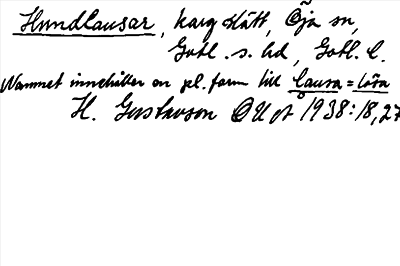 Hundlausar, karg slätt, Öja sn,
Gotl. s. hd, Gotl. l.
Namnet innehåller en pl. form till lausa = lösa
H. Gustavson OUÅ 1938: 18, 27